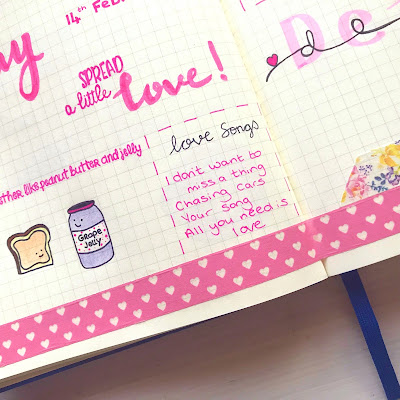 14th Feb
SPREAD
a little love!
de
ether like peanut butter and jelly
GRAPE
JELLY
love songs
I dont want to
miss a thing
Chasing cars
Your song
All you need is
love